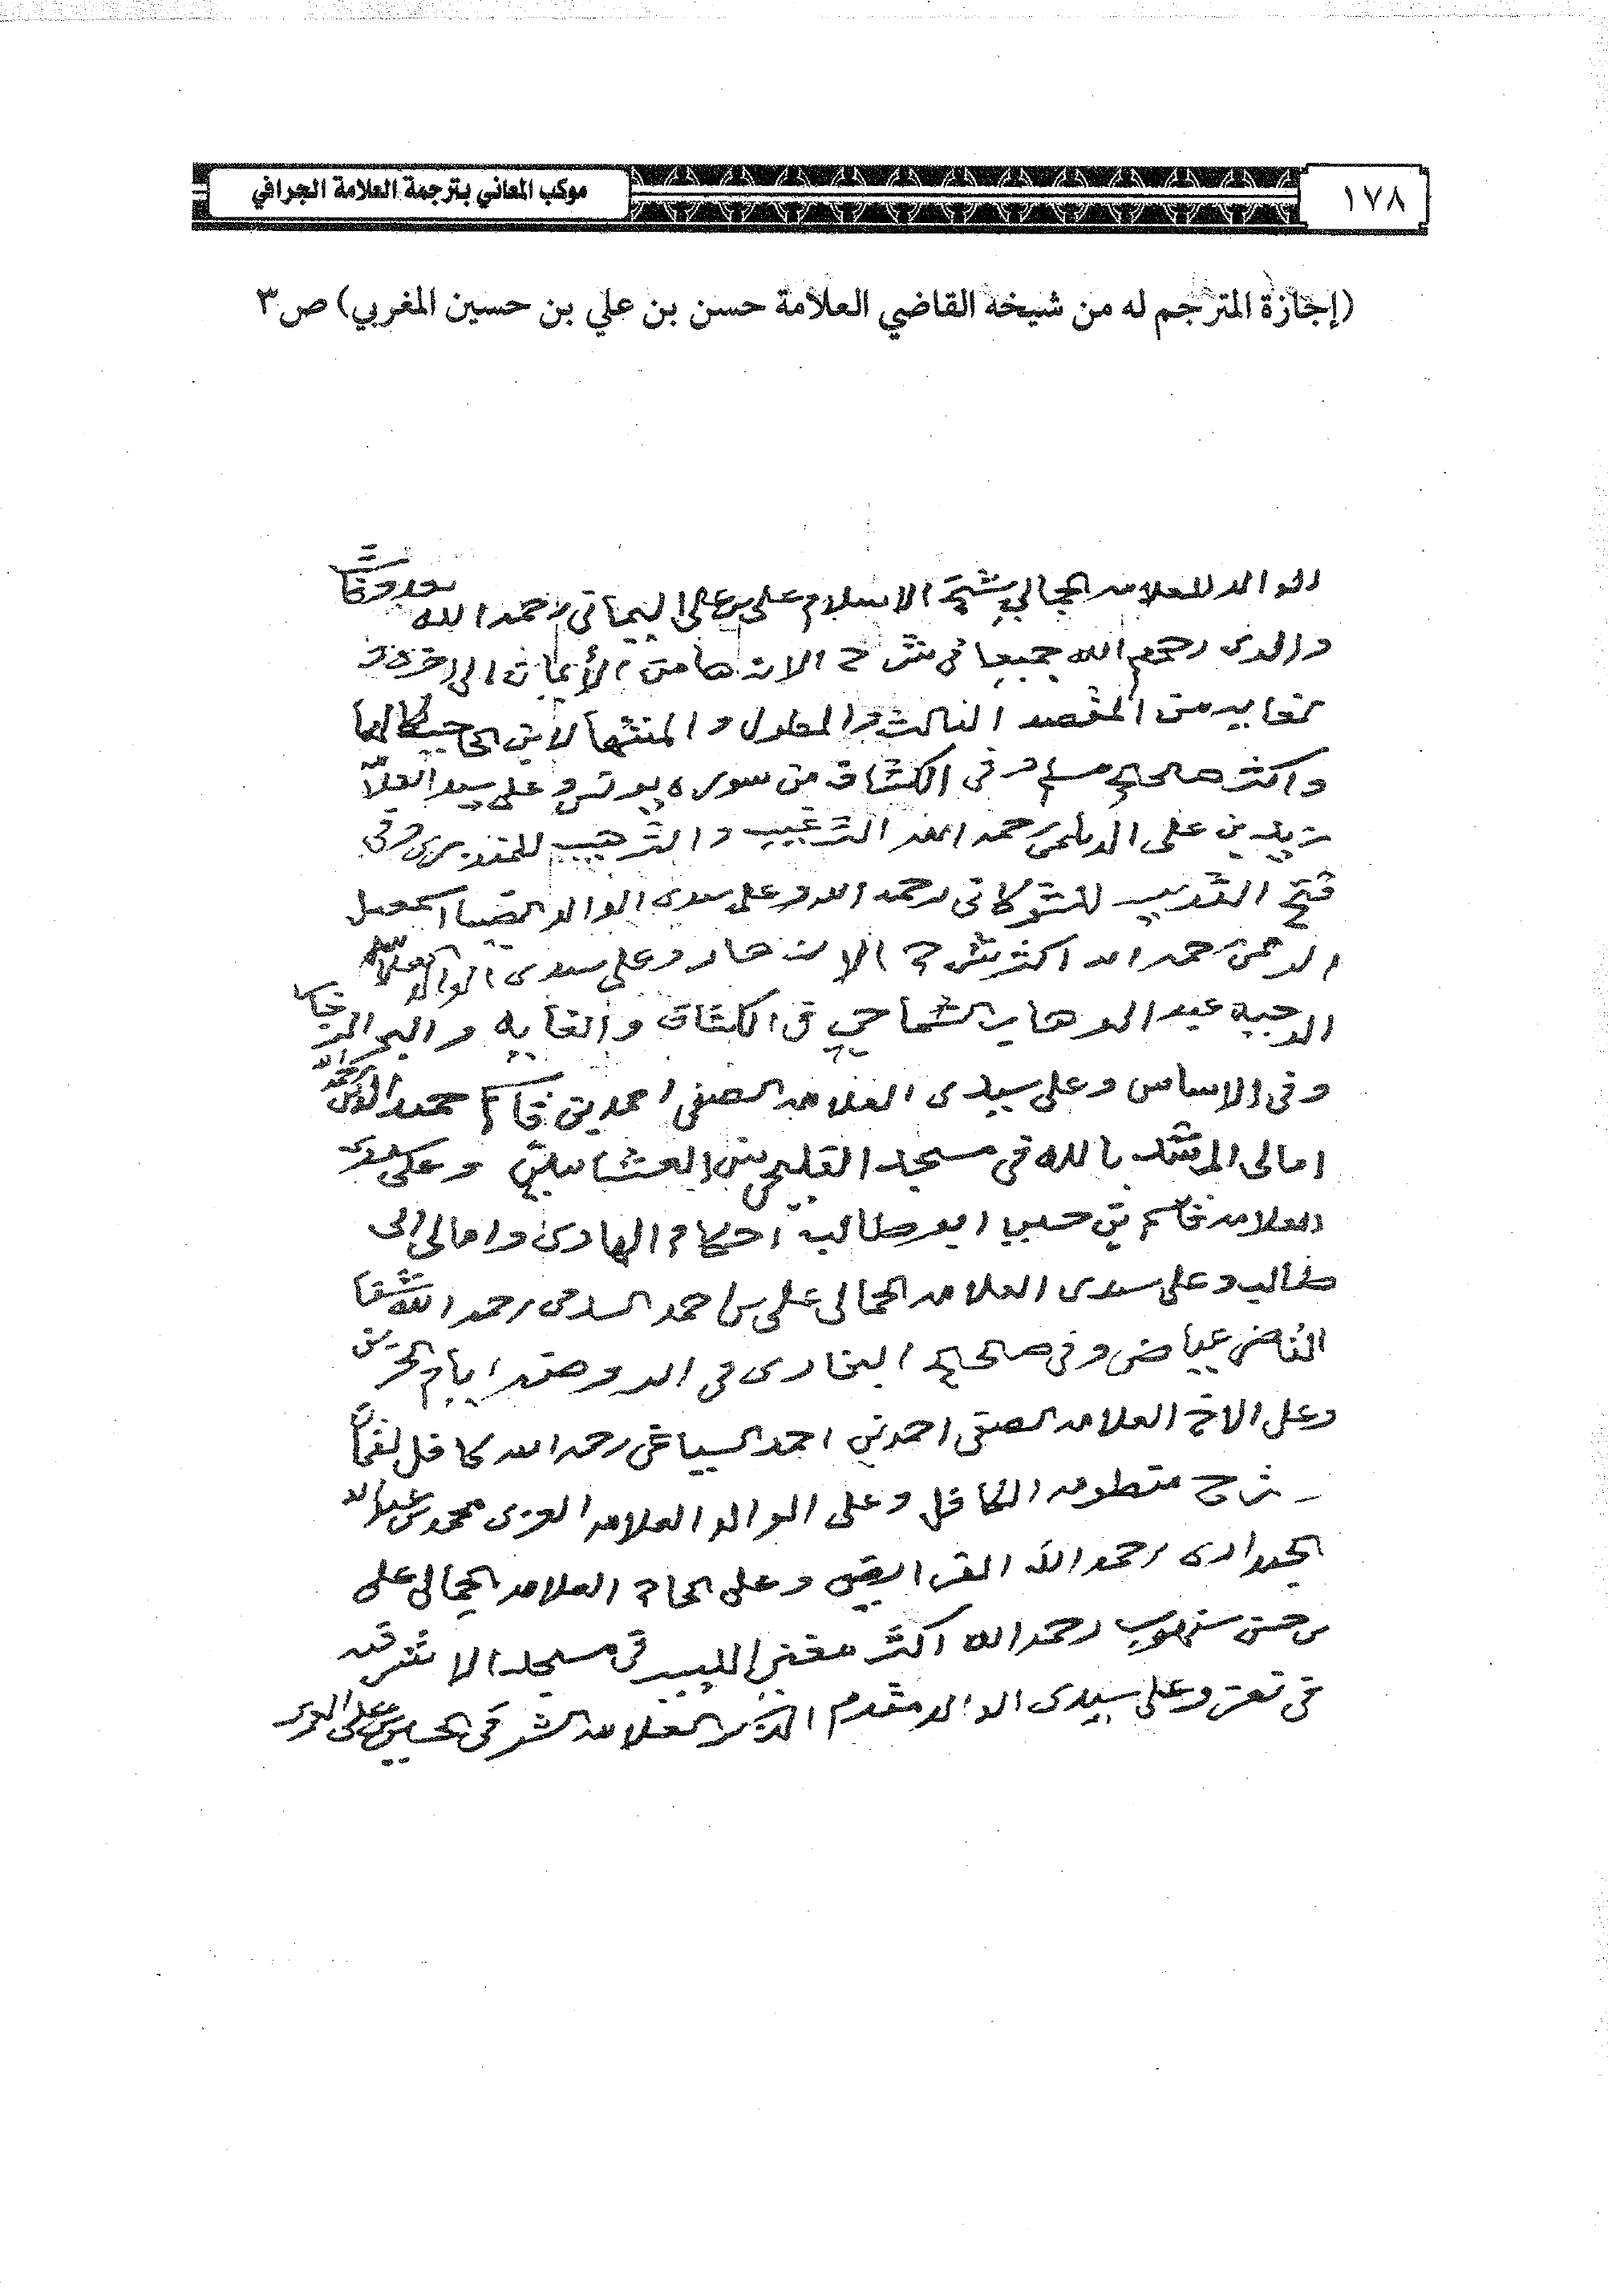 موكب المعاني بترجمة العلامة الجرافي
١٧٨
(إجازة المترجم له من شيخه القاضي العلامة حسن بن علي بن حسين المغربي) ص٣
الوالد العلامه الجمالي شيخ الاسلام على بن على اليماني رحمه الله بعد وفاة
والدى رحمهم الله جميعا في شرح الازهار من الأيمان الى اخره و
الغايه من المقصد الثالث والمطول و المنتهى لابن الحاجب
واكثر صحيح مسلم و فى الكشاف من سورة يونس وعلى سيدى العلا
زيد بن على الديلمى رحمه الله الترغيب والترهيب للمنذرى وفى
فتح القدير للشوكانى رحمه الله وعلى سيدى الوالد الضيا اسمعيل
رحمه الله اكثر شرح الازهار وعلى سيدى الوالد العلامه
الوجيه عبد الوهاب الشماحي في الكشاف والغايه و البحر
وفى الاساس وعلى سيدى العلامه الصفى احمد بن قاسم حميد الدين رحمه الله
امالى المرشد بالله في مسجد القليحى بين العشائين وعلى سيدى
العلامه قاسم بن حسين ابو طالب احكام الهادى وامالى ابى
طالب وعلى سيدى العلامه الجمالى على بن احمد السدمى رحمه الله شفا
القاضى عياض وفى صحيح البخارى في الروضه ايام
وعلى الاخ العلامه الصفى احمد بن احمد السياغى رحمه الله كافل لقمان
شرح منظومه الكافل وعلى الوالد العلامه العزى محمد بن عبد الله
الجندارى رحمه الله الفرايض وعلى الحاج العلامه الجمالى على
بن حسن سنهوب رحمه الله اكثر مغني اللبيب في مسجد الاشرفيه
في تعز وعلى سيدى الوالد مقدم الذكر العلامه الشرفى الحسين بن على